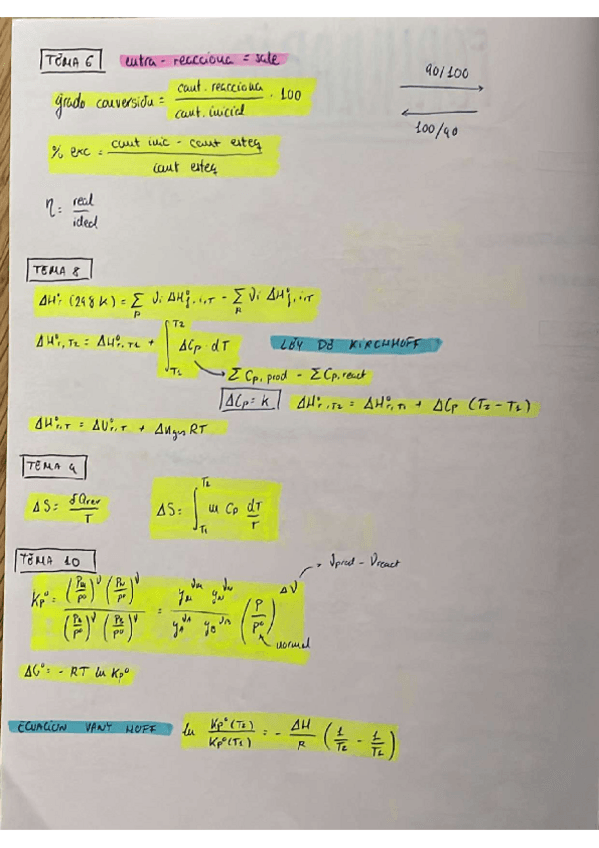 TEMA 6 entra - reacciona = sale
90/100
100/90
grado conversión = cant. reacciona / cant. inicial · 100
% exc = cant inic - cant esteq / cant esteq
η = real / ideal
TEMA 8
ΔH°r (298 K) = Σ_P νi ΔH°f,i,T - Σ_R νi ΔH°f,i,T
ΔH°r,T2 = ΔH°r,T1 + ∫_T1^T2 ΔCp · dT LEY DE KIRCHHOFF
Σ Cp, prod - Σ Cp, react
ΔCp = K ΔH°r,T2 = ΔH°r,T1 + ΔCp (T2 - T1)
ΔH°r,T = ΔU°r,T + Δngas RT
TEMA 9
ΔS = δQrev / T ΔS = ∫_T1^T2 m Cp dT/T
TEMA 10
νprod - νreact
Kp° = (P/P°)^ν (P/P°)^ν / (P/P°)^ν (P/P°)^ν = y^ν y^ν / yA^νA yB^νB (P/P°)^Δν
normal
ΔG° = - RT ln Kp°
ECUACION VANT HOFF ln Kp°(T2) / Kp°(T1) = - ΔH/R (1/T2 - 1/T1)